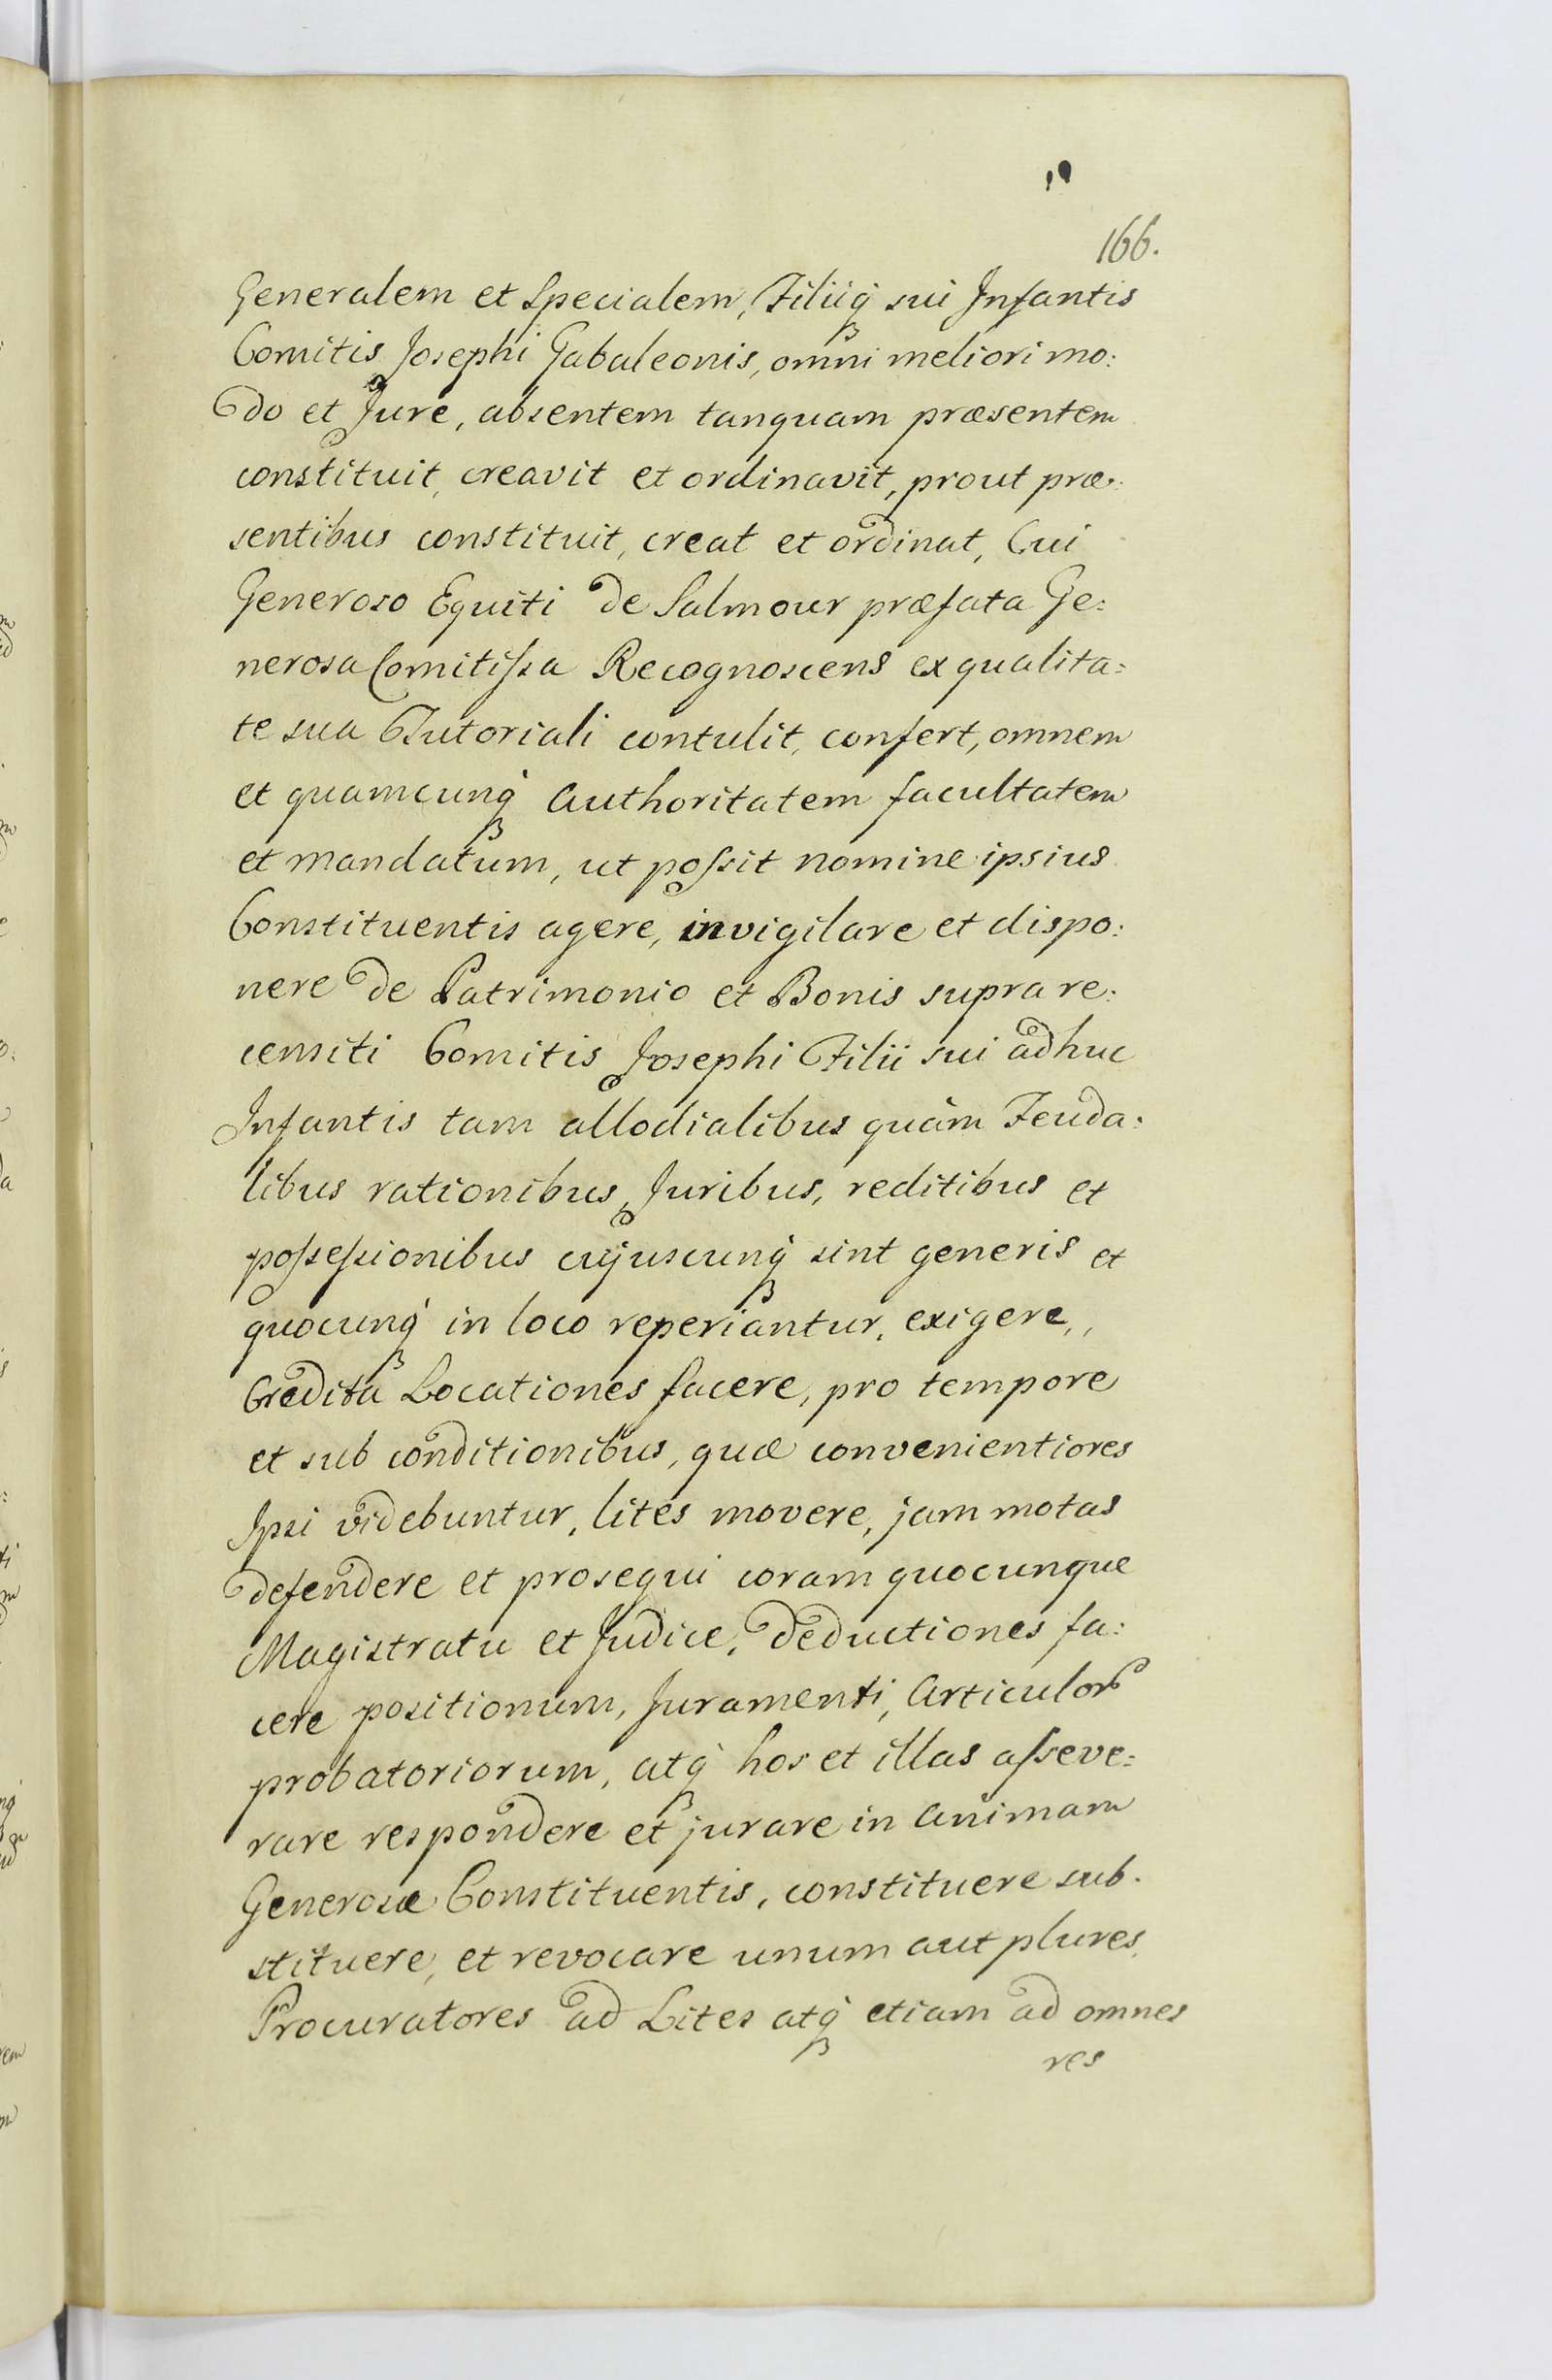 166.
Generalem et Specialem, Filiiq̀ȝ sui Infantis
Comitis Josephi Gabaleonis, omni meliori mo:
do et Jure, absentem tanquam præsentem
constituit, creavit et ordinavit, prout præ:
sentibus constituit, creat et ordinat, Cui
Generoso Equiti de Salmour præfata Ge:
nerosa Comitiſsa Recognoscens ex qualita:
te sua Tutoriali contulit, confert, omnem
et quamcunq̀ȝ Authoritatem facultatem
et mandatum, ut poſsit nomine ipsius
Constituentis agere, invigilare et dispo:
nere de Patrimonio et Bonis supra re:
censiti Comitis Josephi Filii sui adhuc
Infantis tam allodialibus quàm Feuda:
libus rationibus, Juribus, reditibus et
poſseſsionibus cujuscunq̀ȝ sint generis et
quocunq̀ȝ in loco reperiantur, exigere,,
Credita Locationes facere, pro tempore
et sub conditionibus, quæ convenientiores
Ipsi videbuntur, lites movere, jam motas
defendere et prosequi coram quocunque
Magistratu et Judice, deductiones fa:
cere positionum, Juramenti, Articuloꝝ
probatoriorum, atq̀ȝ hos et illas aſseve:
rare respondere et jurare in Animam
Generosæ Constituentis, constituere sub:
stituere, et revocare unum aut plures
Procuratores ad Lites atq̀ȝ etiam ad omnes
res